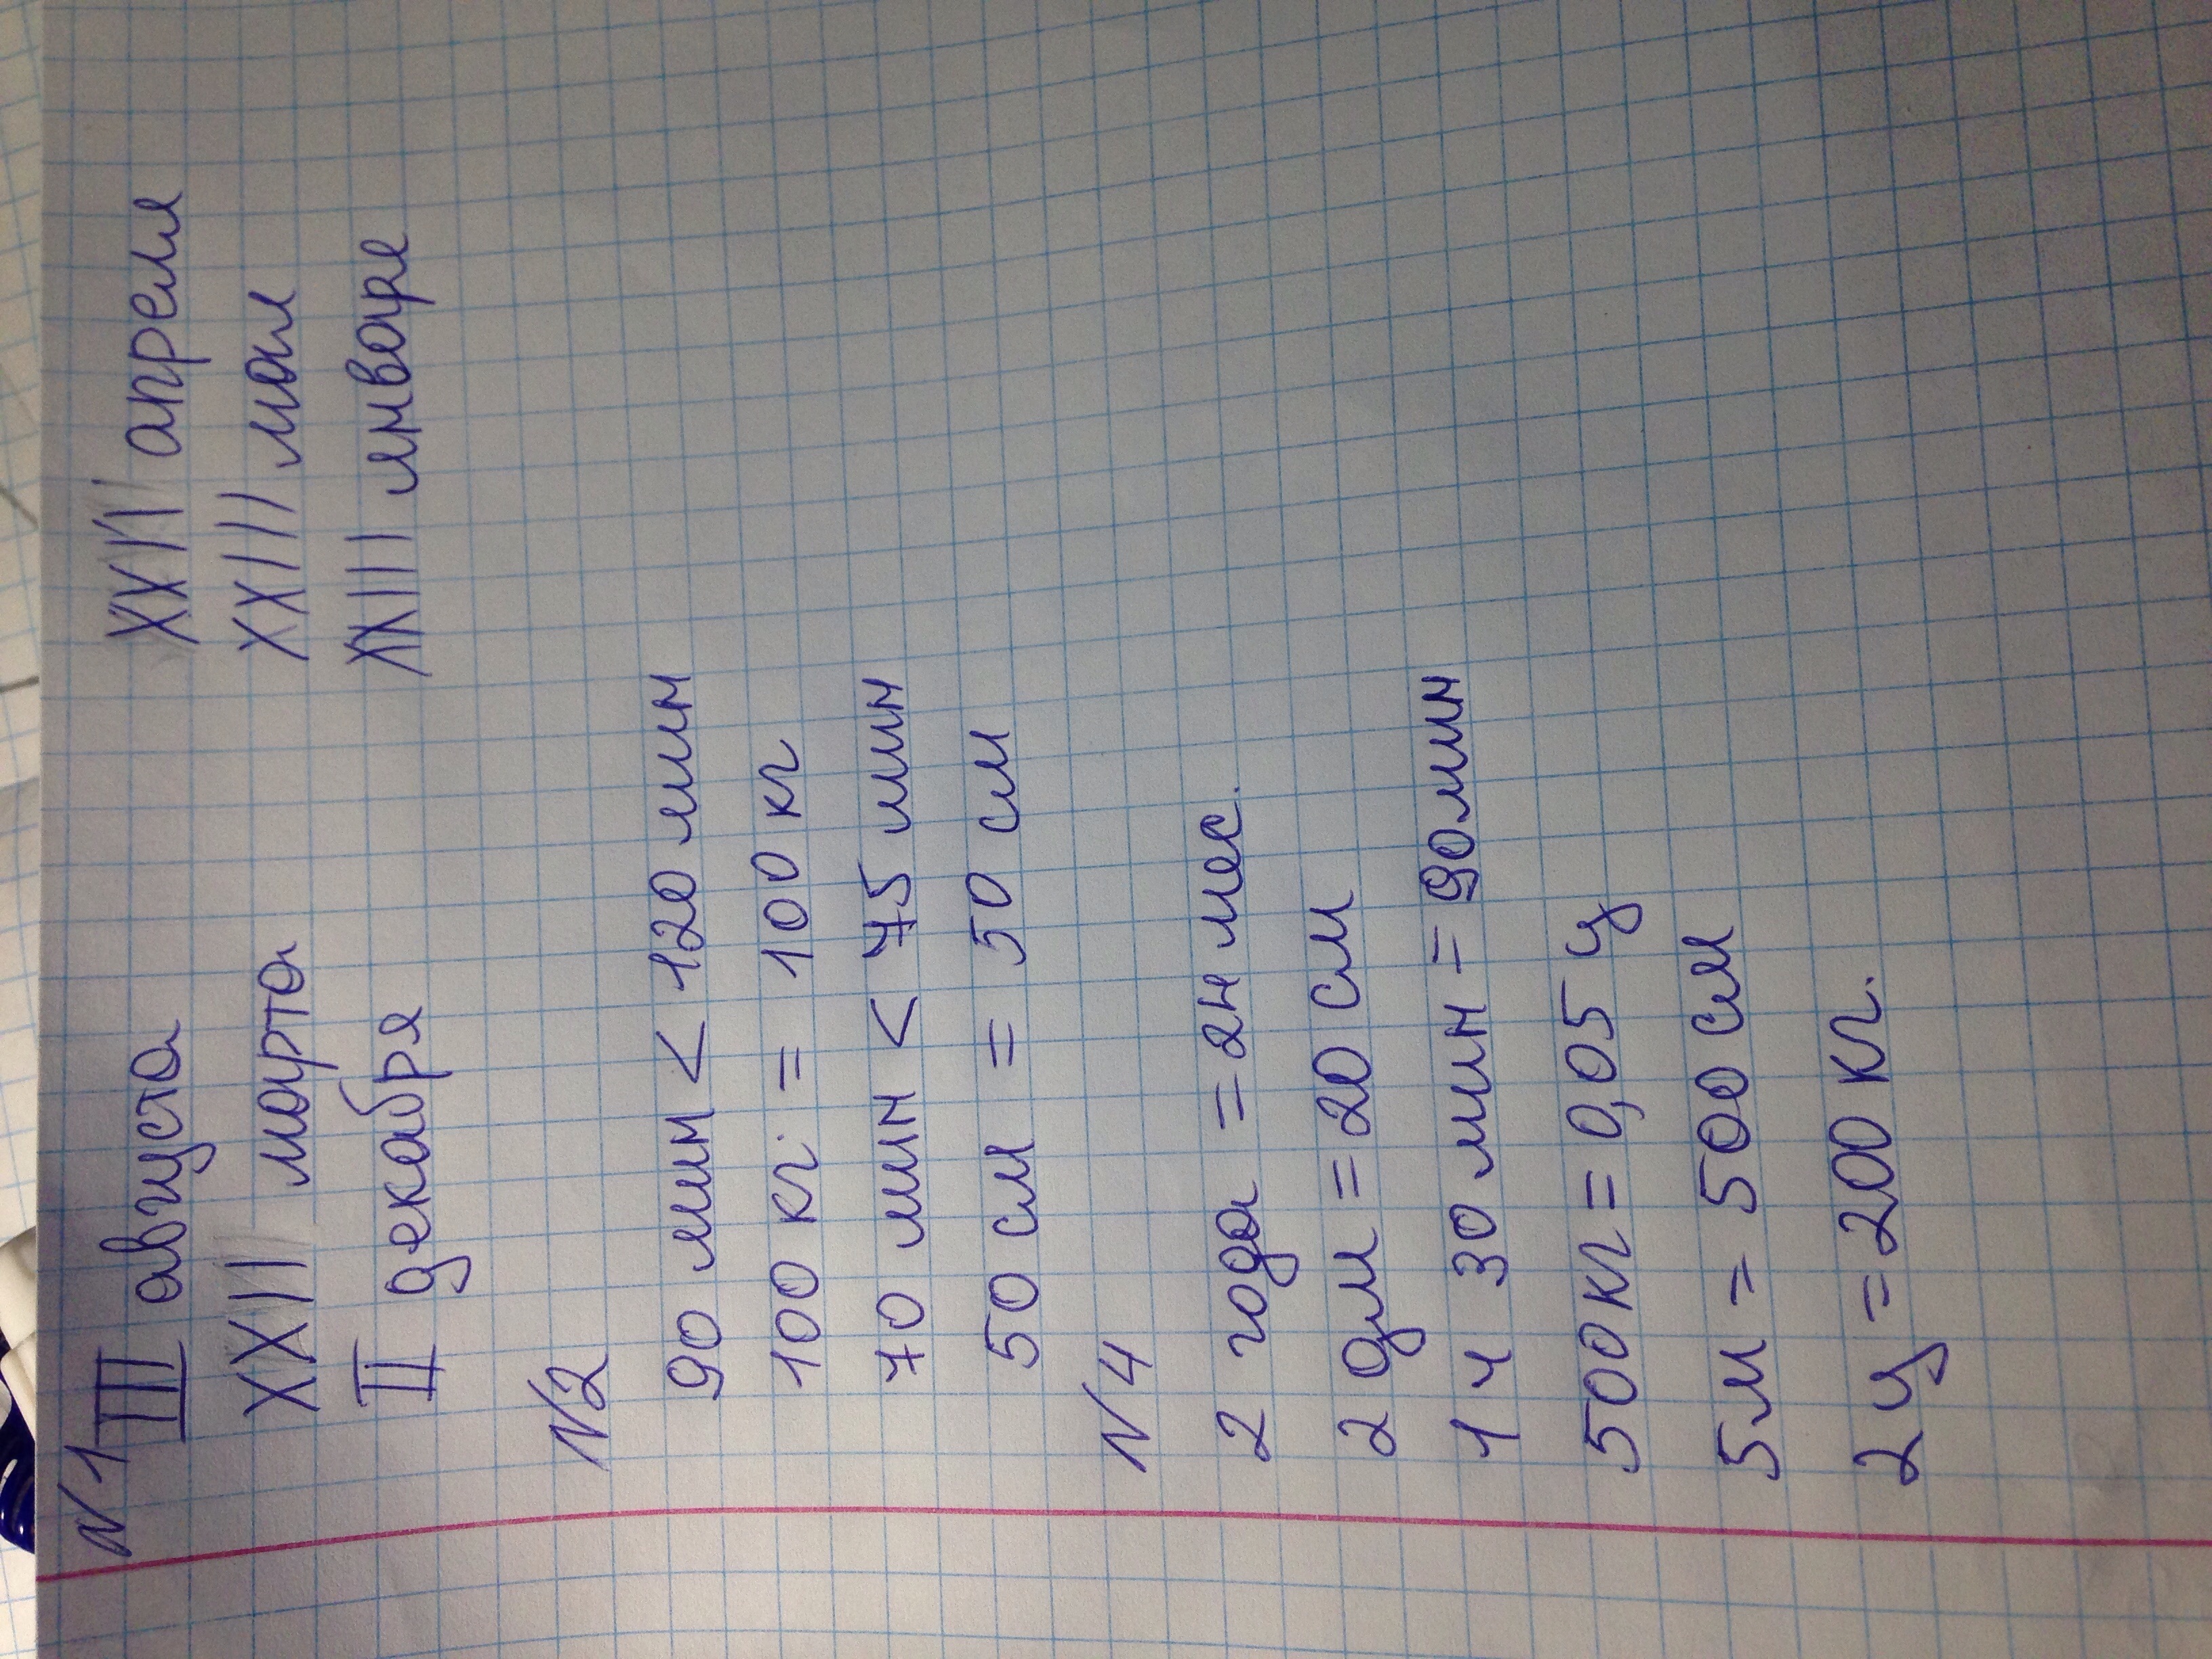 N1 III августа XXVI апреля
XXII марта XXIII мая
II декабря XXIII января
N2
90 мин < 120 мин
100 кг = 100 кг
70 мин < 75 мин
50 см = 50 см
N4
2 года = 24 мес.
2 дм = 20 см
1 ч 30 мин = 90 мин
500 кг = 0,05 ц
5м = 500 см
2 ц = 200 кг.